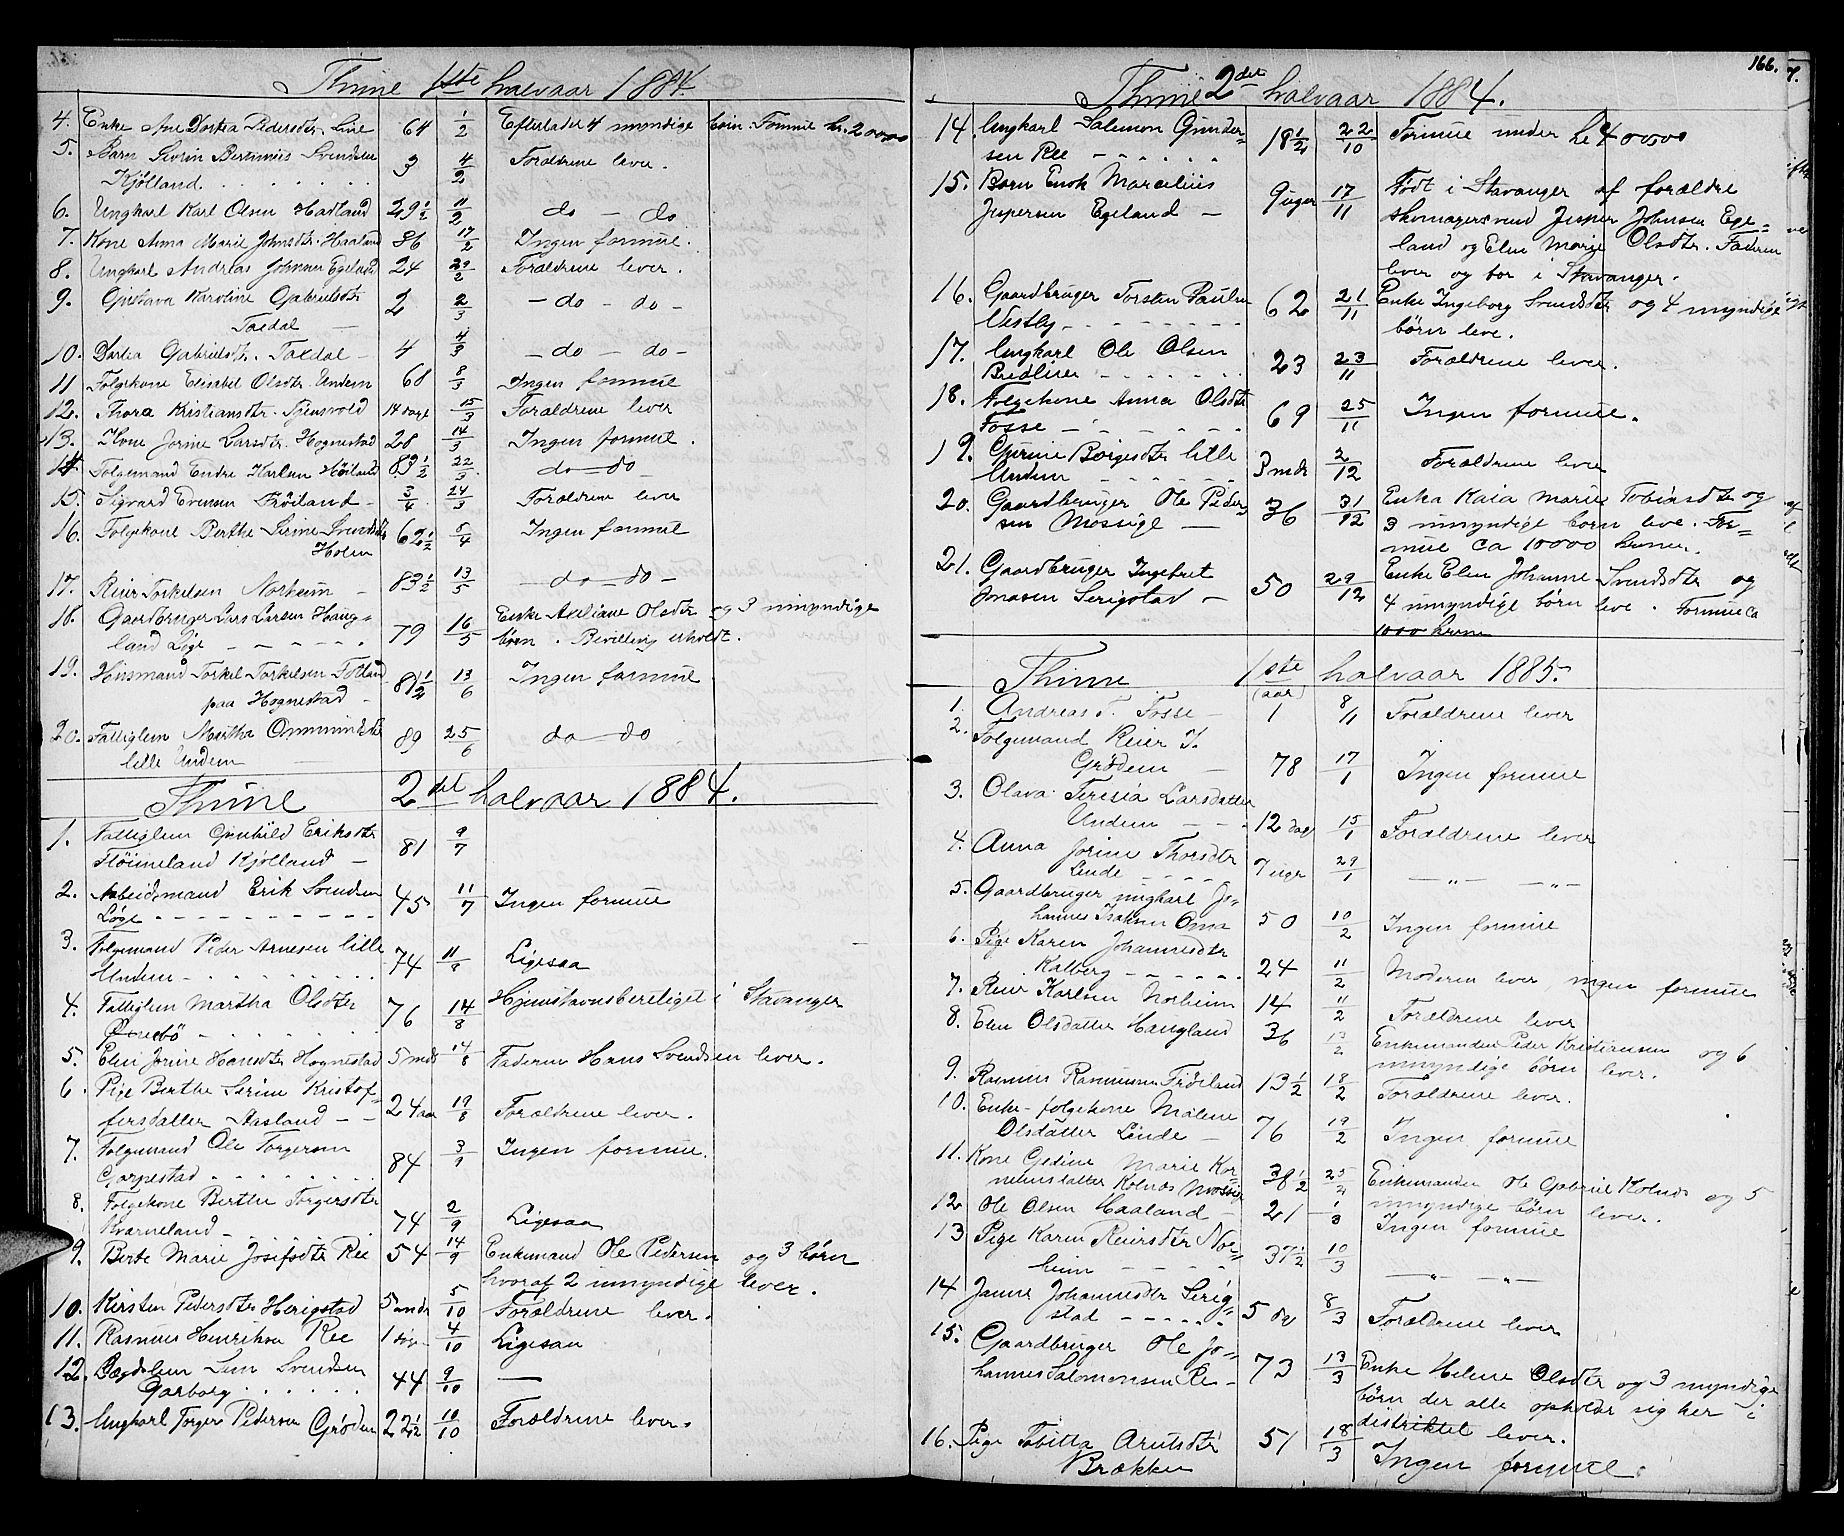 Thime 1ste halvaar 1884.
4. Enke Ane Dortea Pedersdtr. Line 64 1/2 Efterlader 4 myndige börn. Formue kr. 20000
5. Barn Sevrin Bertinius Svendsen 3 4/2 Forældrene lever.
Kjölland
6. Ungkarl Karl Olsen Hadland 29½ 11/2 do - do
7. Kone Anna Marie Johnsdtr. Haaland 86 17/2 Ingen formue.
8. Ungkarl Andreas Johnsen Egeland 24 29/2 Forældrene lever.
9. Gustava Karoline Gabrielsdtr 2 2/3 - do - do -
Taxdal
10. Dortea Gabrielsdtr. Taxdal - 4 4/3 - do - do -
11 Folgekone Elisabet Olsdtr. Undem 68 8/3 Ingen formue
12. Thora Kristiansdtr. Tjensvold 14 dage 15/3 Forældrene lever
13. Kone Jorine Larsdtr. Hognestad 28 14/3 Ingen formue.
14. Folgemand Endre Karlsen Höiland 83½ 22/3 do - do -
15. Sigvard Evensen Fröiland - 3/4 24/3 Forældrene lever
16. Folgekone Berthe Serine Svendsdtr 62½ 5/4 Ingen formue
Holen
17. Reier Torkelsen Norheim - 83½ 13/5 - do - do -
18. Gaardbruger Lars Larsen Haug- 79 16/5 Enke Axeliane Olsdtr og 3 umyndige
land Löge - - - - - börn. Bevilling erholdt.
19. Huusmand Torkel Torkelsen Totland 81½ 13/6 Ingen formue
paa Hognestad -
20. Fattiglem Martha Ommundsdtr 89 25/6 do - do
lille Undem
Thime 2det halvaar 1884.
1. Fattiglem Gunhild Eriksdtr 81 9/7
Flöimeland Kjölland -
2. Arbeidsmand Erik Svendsen 45 11/7 Ingen formue
Löge - - - - - - - - -
3. Folgemand Peder Arnesen lille 74 11/8 Ligesaa
Undem - . . . . . . .
4. Fattiglem Martha Olsdtr 76 14/8 Hjemstavnsberettiget i Stavanger
5. Elen Jorine Hansdtr Hognestad 5 mdr 14/8 Faderen Hans Svendsen lever.
6 Pige Berthe Serine Kristof- 24 aar 19/8 Forældrene lever.
fersdatter Aasland - -
7. Folgemand Ole Torgersen 84 3/9 Ingen formue.
Garpestad
8. Folgekone Berthe Torgersdtr 74 2/9 Ligesaa
Kværneland -
9. Berte Marie Josefsdtr Ree 54 14/9 Enkemand Ole Pedersen og 3 börn
hvoraf 2 umyndige lever.
10. Kirsten Pedersdtr Herigstad 5 mdr 5/10 Forældrene lever.
11. Rasmus Henriksen Ree 1 dög 4/10 Ligesaa
12. Lægdslem Svendsen 44 9/10 -
Garborg . . . . . .
13. Ungkarl Torger Pedersen Gröden 22½ 10/10 Forældrene lever.
166.
Thime 2det halvaar 1884.
14. Ungkarl Salomon Gunder- 18½ 22/10 Formue under kr 40000
sen Ree - - . . . .
15. Barn Enok Marcelius 9 uger 17/11 Födt i Stavanger af forældre
Jespersen Egeland - skomagersvend Jesper Johnsen Ege-
land og Elen Marie Olsdtr. Faderen
lever og bor i Stavanger.
16. Gaardbruger Torsten Paulsen 62 21/11 Enke Ingeborg Svendsdtr og 4 myndige
Vestly - - - - - - - - börn leve.
17. Ungkarl Ole Olsen 23 23/11 Forældrene lever.
Bredlien - - - - - - -
18. Folgekone Anna Olsdtr 69 25/11 Ingen formue.
Fosse - - - - - - -
19. Gurine Börgesdtr lille 3 mdr 2/12 Forældrene lever
Undem - - - - - -
20. Gaardbruger Ole Peder- 36 31/12 Enke Kaia Marie Tobiasdtr og
sen Mossige - 3 umyndige börn leve. For-
mue ca 10000 kroner.
21. Gaardbruger Ingebret 50 29/12 Enke Elen Johanne Svendsdtr og
Jonasen Serigstad - 4 umyndige börn leve. Formue ca
1000 krone
Thime 1ste halvaar 1885.
(aar)
1. Andreas T. Fosse - 1 8/11 Forældrene lever
2. Folgemand Reier T.
Grödem - 78 17/1 Ingen formue
3. Olava Teresia Larsdatter
Undem - - - 12 dag 15/1 Forældrene lever
4. Anna Jorine Thorsdtr
Lende - - - - 7 uger 29/1 - „ - - „ -
5. Gaardbruger ungkarl Jo-
hannes Isaksen Oma 50 10/2 Ingen formue
6. Pige Karen Johannesdtr
Kalberg - - - - - - 24 11/2 Moderen lever, ingen formue
7. Reier Karlsen Norheim 14 11/2 Forældrene lever
8. Elen Olsdatter Haugland 36 13/2 Enkemanden Peder Kristiansen og 6
umyndige börn lever.
9. Rasmus Rasmussen Fröiland 13½ 18/2 Forældrene lever.
10. Enke-folgekone Malene
Olsdatter Lende - 76 19/2 Ingen formue
11. Kone Gjedine Marie Kor-
neliusdatter Kolnæs Mossige 38½ 25/2 Enkemanden Ole Gabriel Kolnæs og 5
umyndige börn lever.
12 Ole Olsen Haaland - 21 1/3 Ingen formue
13 Pige Karen Reiersdtr Nor-
heim - - - - - 37½ 10/3 - „ - - „ -
14 Janne Johannesdtr Serig-
stad - - - - - 5 dg 8/3 Forældrene lever
15. Gaardbruger Ole Jo-
hannes Salomonsen Re - 73 13/3 Enke Helene Olsdtr og 3 myndige
börn der alle opholder sig her i
distriktet lever.
16. Pige Tobitta Arntsdtr 51 18/3 Ingen formue.
Brækken